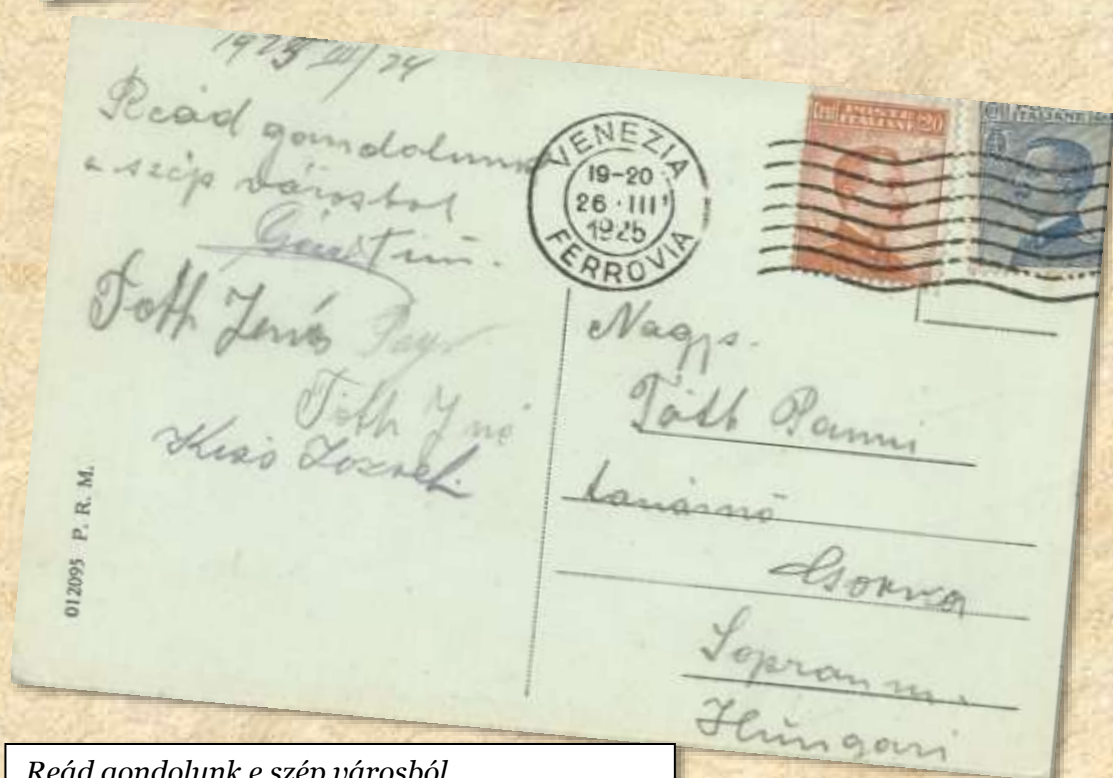 1925 III/24
Reád gondolunk
e szép városból
Tóth Jenő
Tóth Jenő
Kiss József
012095 P. R. M.
VENEZIA
19-20
26·III
1925
FERROVIA
POSTE
ITALIANE 20
ITALIANE
Nagys.
Tóth Panni
tanárnő
Csorna
Sopron m.
Hungari
Reád gondolunk e szép városból